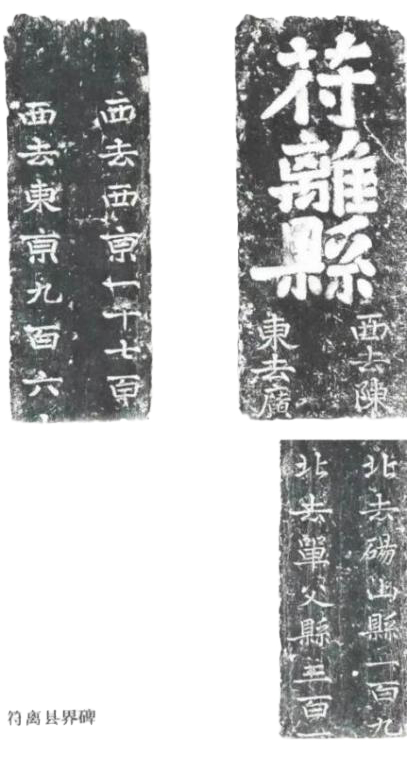 苻離縣
西去陳
東去廣
西去西亰一千七百
西去東亰九百六
北去碭山縣一百九
北去單父縣三百
符离县界碑